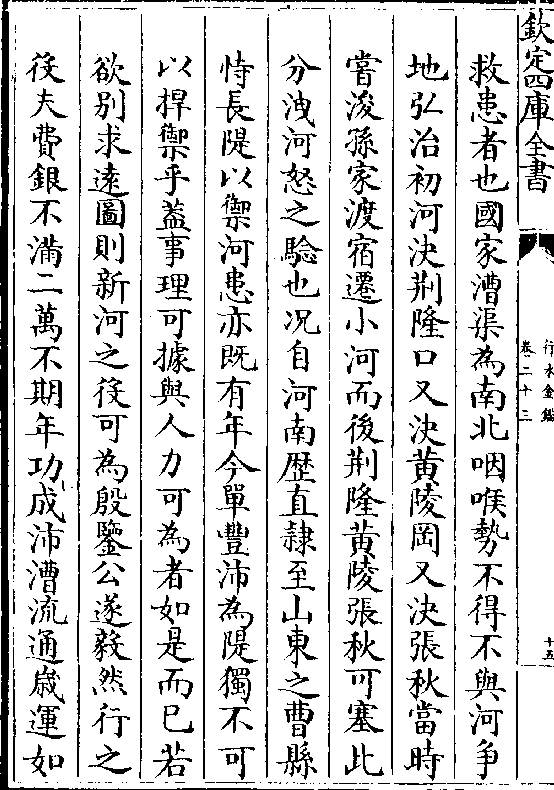 欽定四庫全書
行水金鑑
卷二十三
十五
救患者也國家漕渠為南北咽喉勢不得不與河爭
地弘治初河決荆隆口又決黄陵岡又決張秋當時
嘗浚孫家渡宿遷小河而後荆隆黄陵張秋可塞此
分洩河怒之驗也况自河南歴直隷至山東之曹縣
恃長隄以禦河患亦既有年今單豐沛為隄獨不可
以捍禦乎葢事理可據與人力可為者如是而已若
欲别求逺圖則新河之役可為殷鑒公遂毅然行之
役夫費銀不滿二萬不期年功成沛漕流通嵗運如